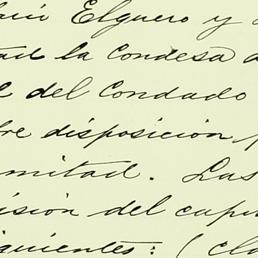 Elguero y
la Condesa
del Condado
disposición
mitad. Las
del
siguientes: (